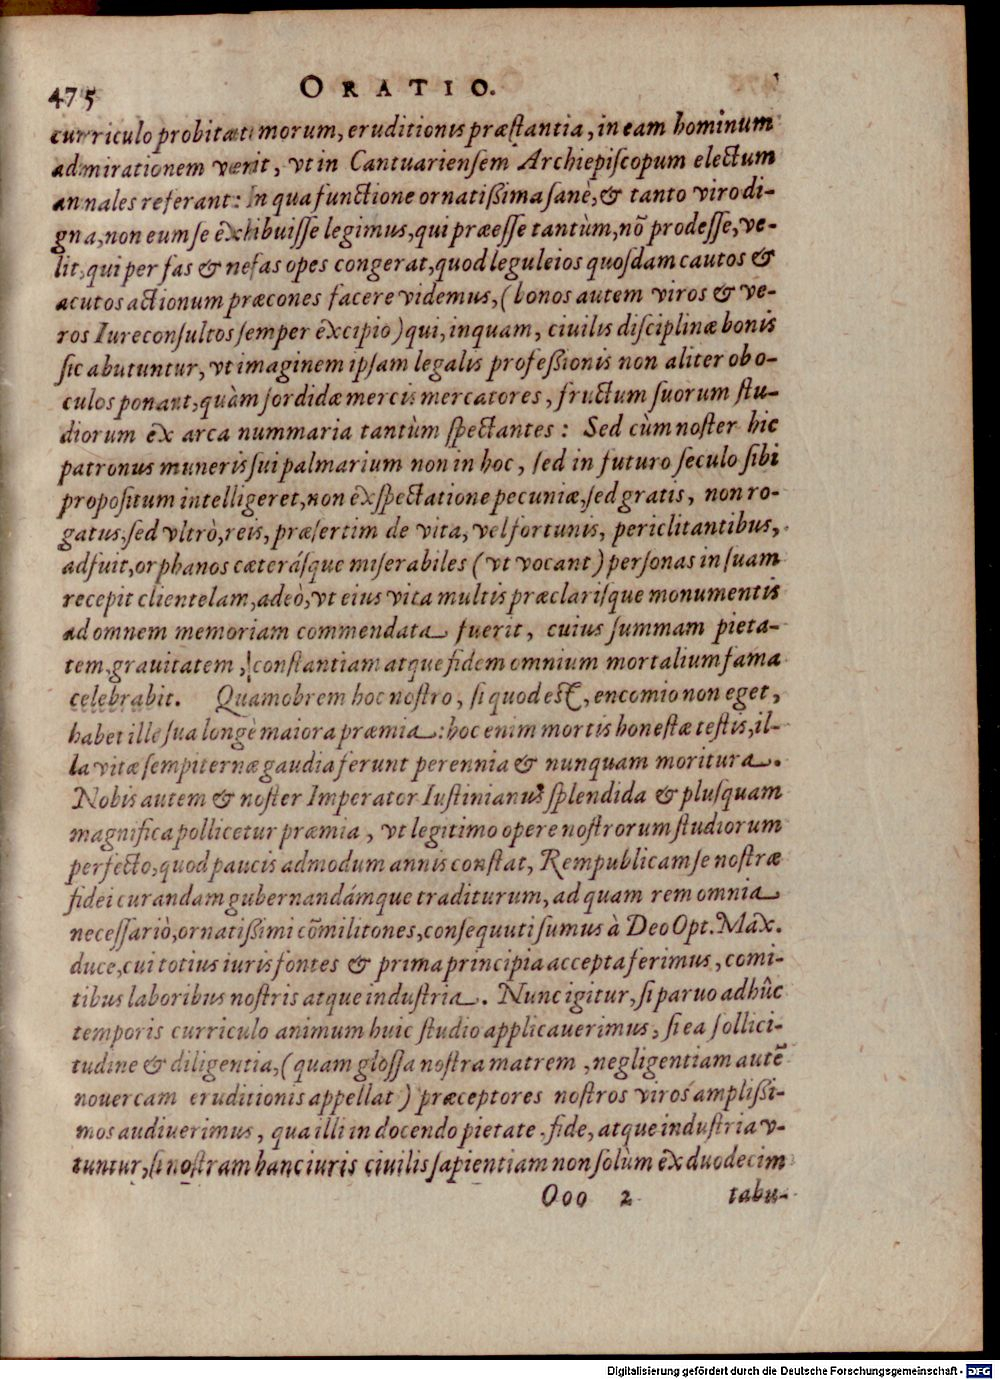 475 ORATIO.
curriculo probitate morum, eruditionis præstantia, in eam hominum
admirationem venit, vt in Cantuariensem Archiepiscopum electum
annales referant: In qua functione ornatißima sanè, & tanto viro di-
gna, non eum se exhibuisse legimus, qui præesse tantùm, nō prodesse, ve-
lit, qui per fas & nefas opes congerat, quod leguleios quosdam cautos &
acutos actionum præcones facere videmus, (bonos autem viros & ve-
ros Iureconsultos semper excipio) qui, inquam, ciuilis disciplinæ bonis
sic abutuntur, vt imaginem ipsam legalis profeßionis non aliter ob o-
culos ponant, quàm sordidæ mercis mercatores, fructum suorum stu-
diorum ex arca nummaria tantùm spectantes: Sed cùm noster hic
patronus muneris sui palmarium non in hoc, sed in futuro seculo sibi
propositum intelligeret, non exspectatione pecuniæ, sed gratis, non ro-
gatus, sed vltrò, reis, præsertim de vita, vel fortunis, periclitantibus,
adfuit, orphanos cæterásque miserabiles (vt vocant) personas in suam
recepit clientelam, adeò, vt eius vita multis præclarisque monumentis
ad omnem memoriam commendata fuerit, cuius summam pieta-
tem, grauitatem, constantiam atque fidem omnium mortalium fama
celebrabit. Quamobrem hoc nostro, si quod est, encomio non eget,
habet ille sua longè maiora præmia: hoc enim mortis honestæ testis, il-
la vitæ sempiternæ gaudia ferunt perennia & nunquam moritura.
Nobis autem & noster Imperator Iustinianus splendida & plusquam
magnifica pollicetur præmia, vt legitimo opere nostrorum studiorum
perfecto, quod paucis admodum annis constat, Rempublicam se nostræ
fidei curandam gubernandámque traditurum, ad quam rem omnia
necessariò, ornatißimi cōmilitones, consequuti sumus à Deo Opt. Max.
duce, cui totius iuris fontes & prima principia accepta ferimus, comi-
tibus laboribus nostris atque industria. Nunc igitur, si paruo adhûc
temporis curriculo animum huic studio applicauerimus, si ea sollici-
tudine & diligentia, (quam glossa nostra matrem, negligentiam autē
nouercam eruditionis appellat) præceptores nostros viros amplißi-
mos audiuerimus, qua illi in docendo pietate. fide, atque industria v-
tuntur, si nostram hanc iuris ciuilis sapientiam non solùm ex duodecim
Ooo 2 tabu-
Digitalisierung gefördert durch die Deutsche Forschungsgemeinschaft - DFG